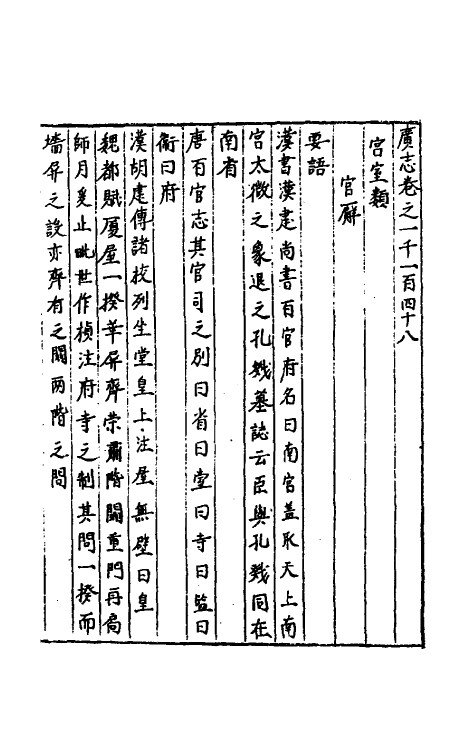 廣志卷之一千一百四十八
宮室類
官廨
要語
漢書漢建尚書百官府名曰南宮蓋取天上南
宮太微之象退之孔戣墓誌云臣與孔戣同在
南省
唐百官志其官司之別曰省曰堂曰寺曰監曰
衞曰府
漢胡建傳諸校列坐堂皇上注屋無壁曰皇
魏都賦厦屋一揆華屏齊榮肅階䦨重門再扃
師月爰止毗世作楨注府寺之制其問一揆而
墻屏之設亦齊有之閣兩階之問